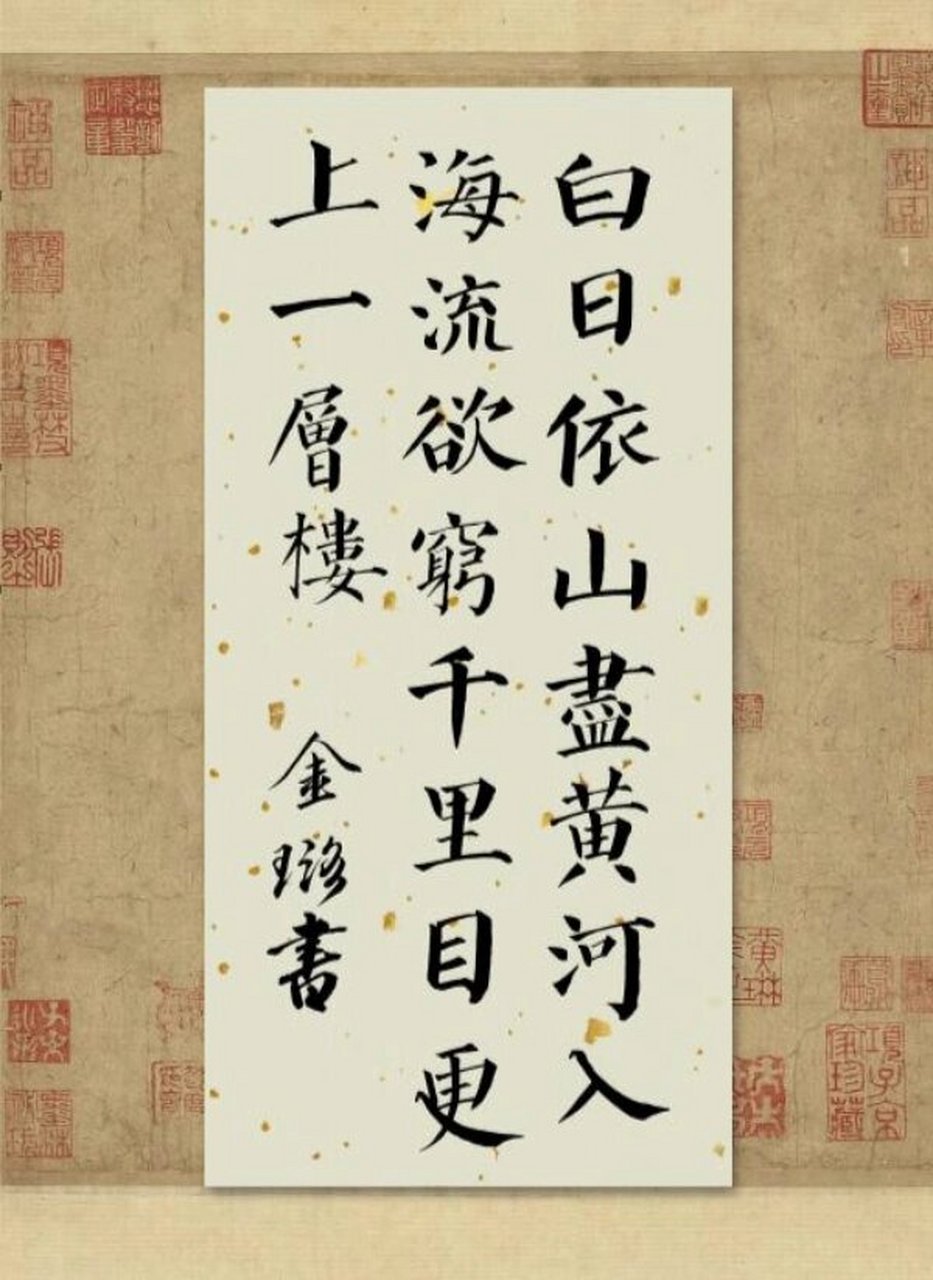 白日依山盡黄河入
海流欲窮千里目更
上一層樓
金璐書